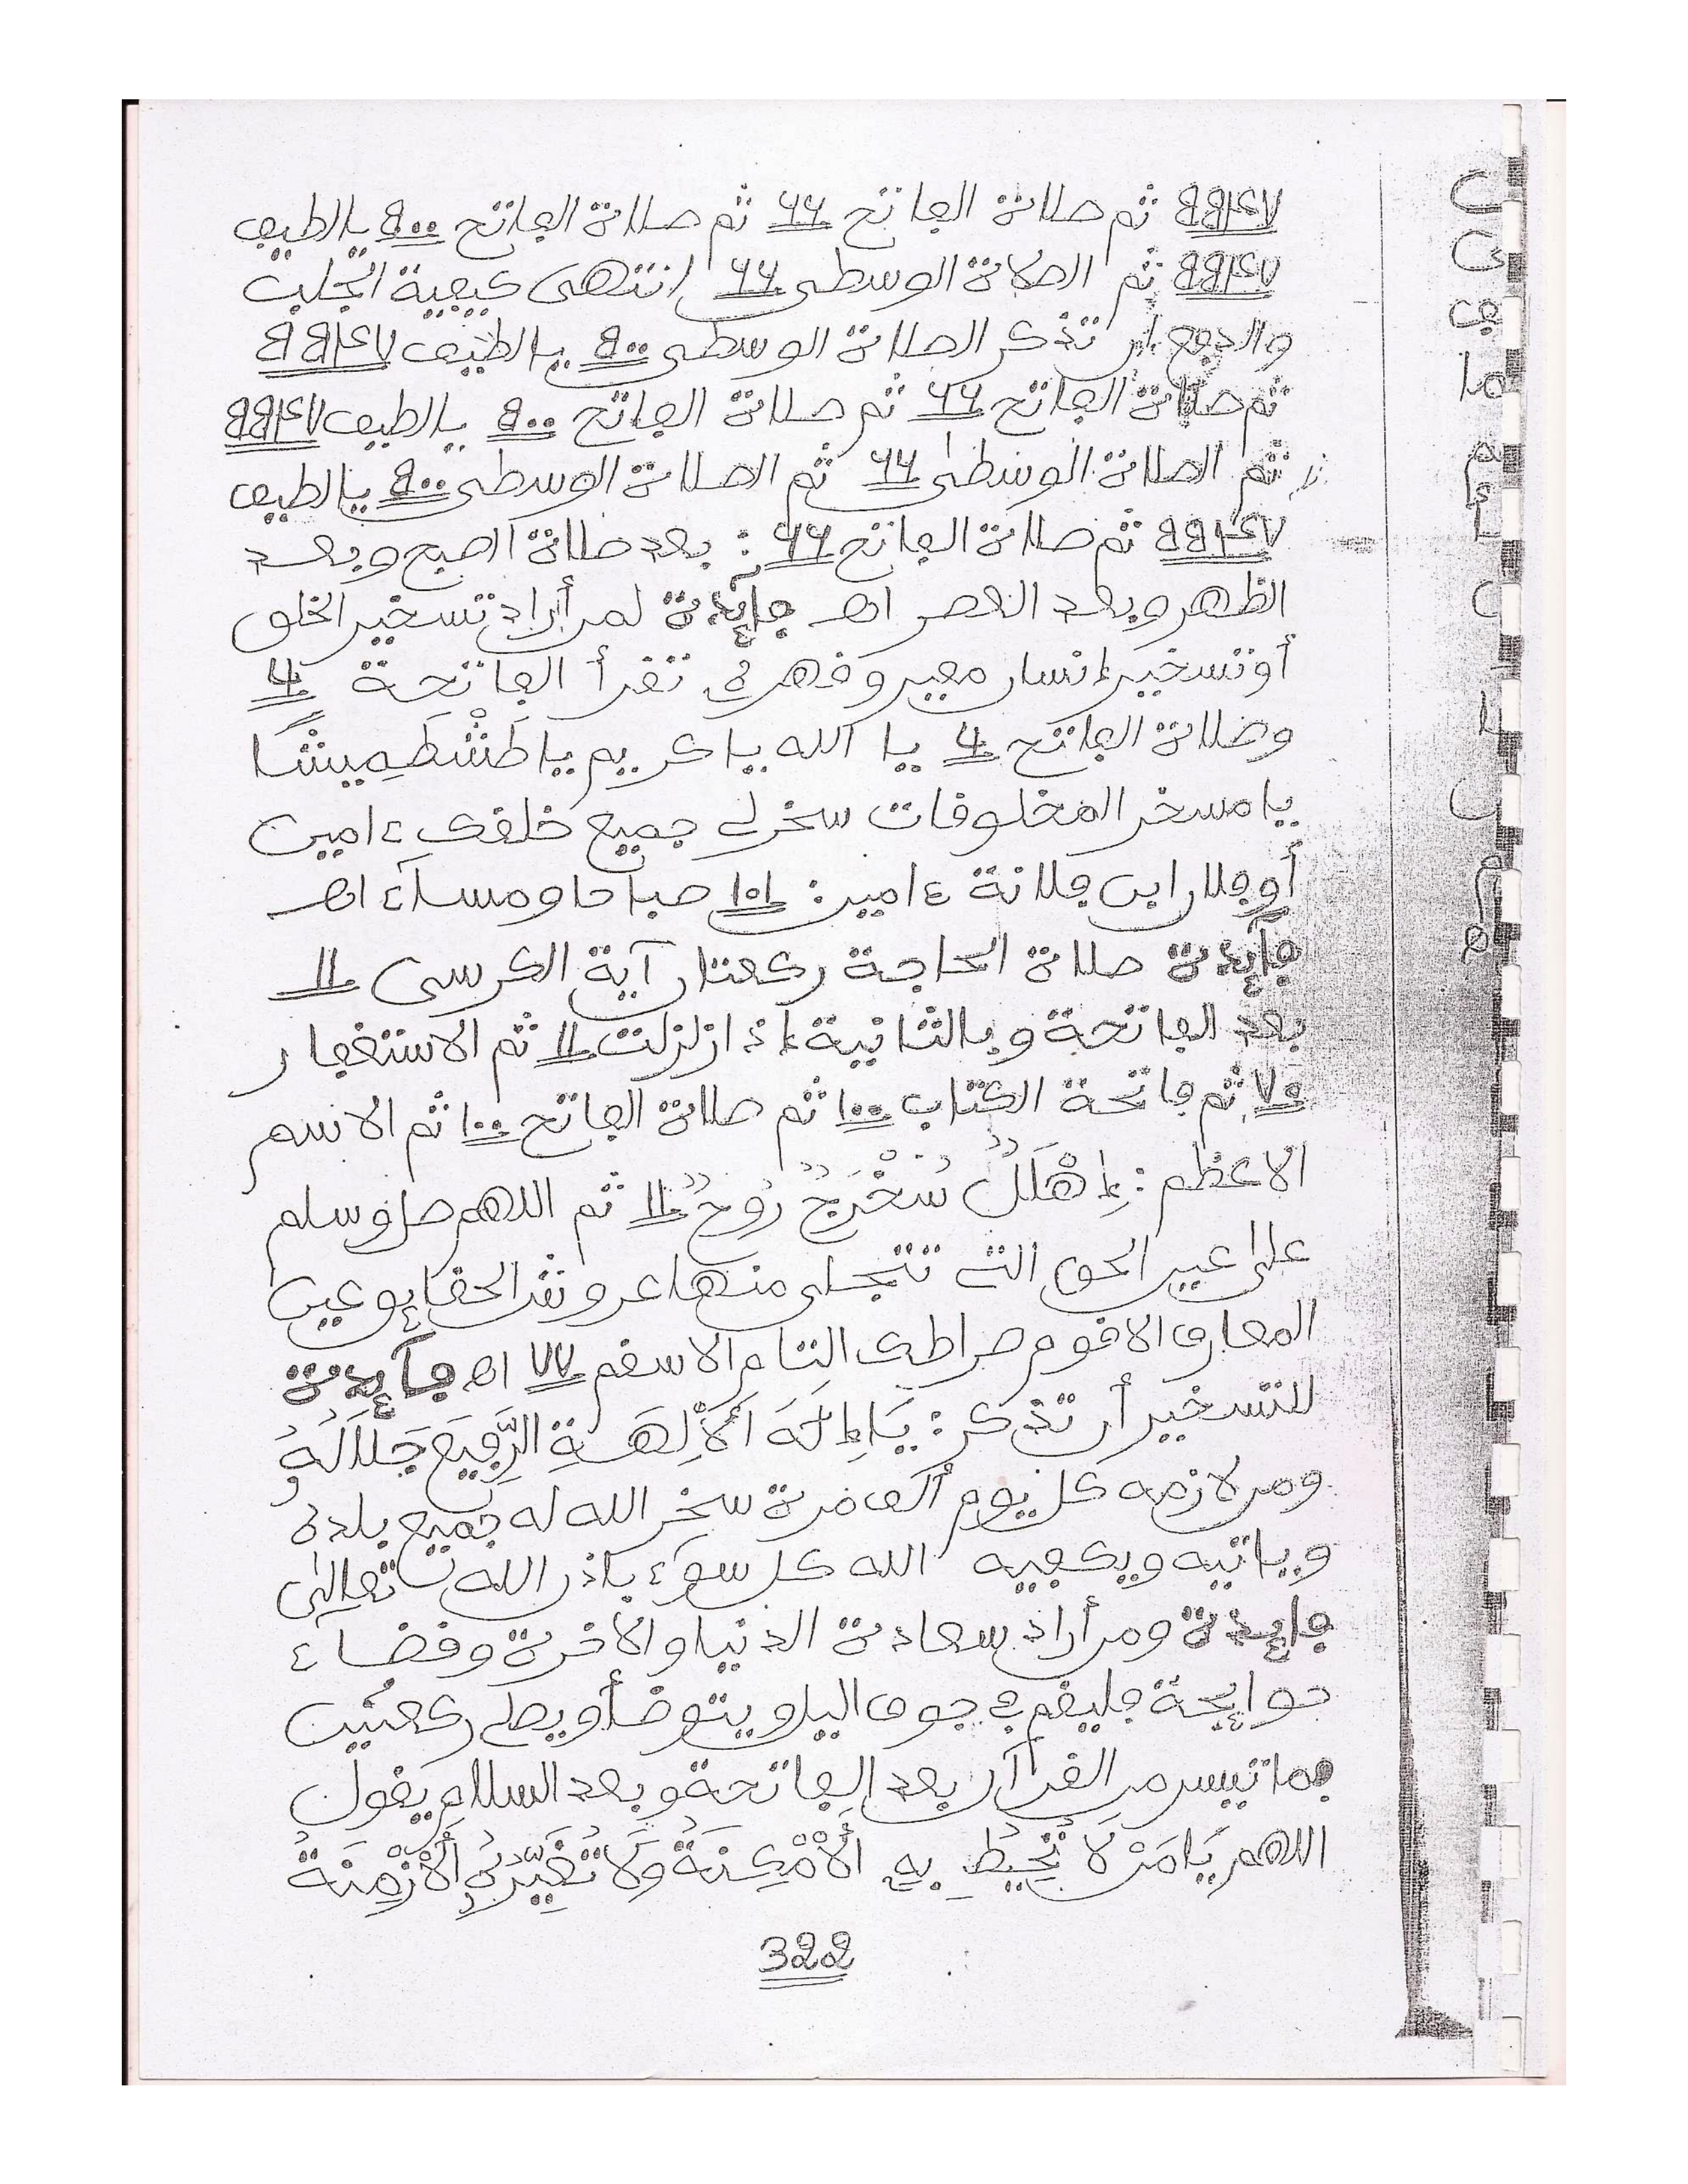 ثم صلاة الفاتح ثم صلاة الفاتح يالطيف
ثم الصلاة الوسطى انتهى كيفية الجلب
والدفع أن تذكر الصلاة الوسطى يالطيف
ثم صلاة الفاتح ثم صلاة الفاتح يالطيف
ثم الصلاة الوسطى ثم الصلاة الوسطى يالطيف
ثم صلاة الفاتح : بعد صلاة الصبح وبعد
الظهر وبعد العصر اهـ فإيدة لمن أراد تسخير الخلق
أو تسخير إنسان معين وقهره تقرأ الفاتحة
وصلاة الفاتح يا الله يا كريم يا طَشْطَهِيشًا
يا مسخر المخلوقات سخر لي جميع خلقك ءامين
أو فلان ابن فلانة ءامين : ١٠١ صباحا ومساء اهـ
فإيدة صلاة الحاجة ركعتان آية الكرسى ١١
بعد الفاتحة وبالثانية إذا زلزلت ١١ ثم الاستغفار
٧٠ ثم فاتحة الكتاب ١٠٠ ثم صلاة الفاتح ١٠٠ ثم الاسم
الاعظم : إِهْلَلٌ سُخْرَجٌ رُوحٌ ١١ ثم اللهم صل وسلم
على عين الحق التي تتجلى منها عروش الحقايق عين
المعارف الاقوم صراطك التام الاسقم ٧٧ اهـ فإيدة
للتسخير أن تذكر : يَا إِلَهَ الْأَلِهَةِ الرَّفِيعَ جَلَالُهُ
ومن لازمه كل يوم ألف مرة سخر الله له جميع بلده
وياتيه ويكفيه الله كل سوء بإذن الله تعالى
فإيدة ومن أراد سعادة الدنيا والاخرة وقضاء
حوايجة فليقم في جوف اليل ويتوضأ ويصلي ركعتين
بما تيسر من القرآن بعد الفاتحة وبعد السلام يقول
اللهم يَا مَنْ لَا تُحِيطُ بِهِ الْأَمْكِنَةُ وَلَا تُغَيِّرُهُ الْأَزْمِنَةُ
322